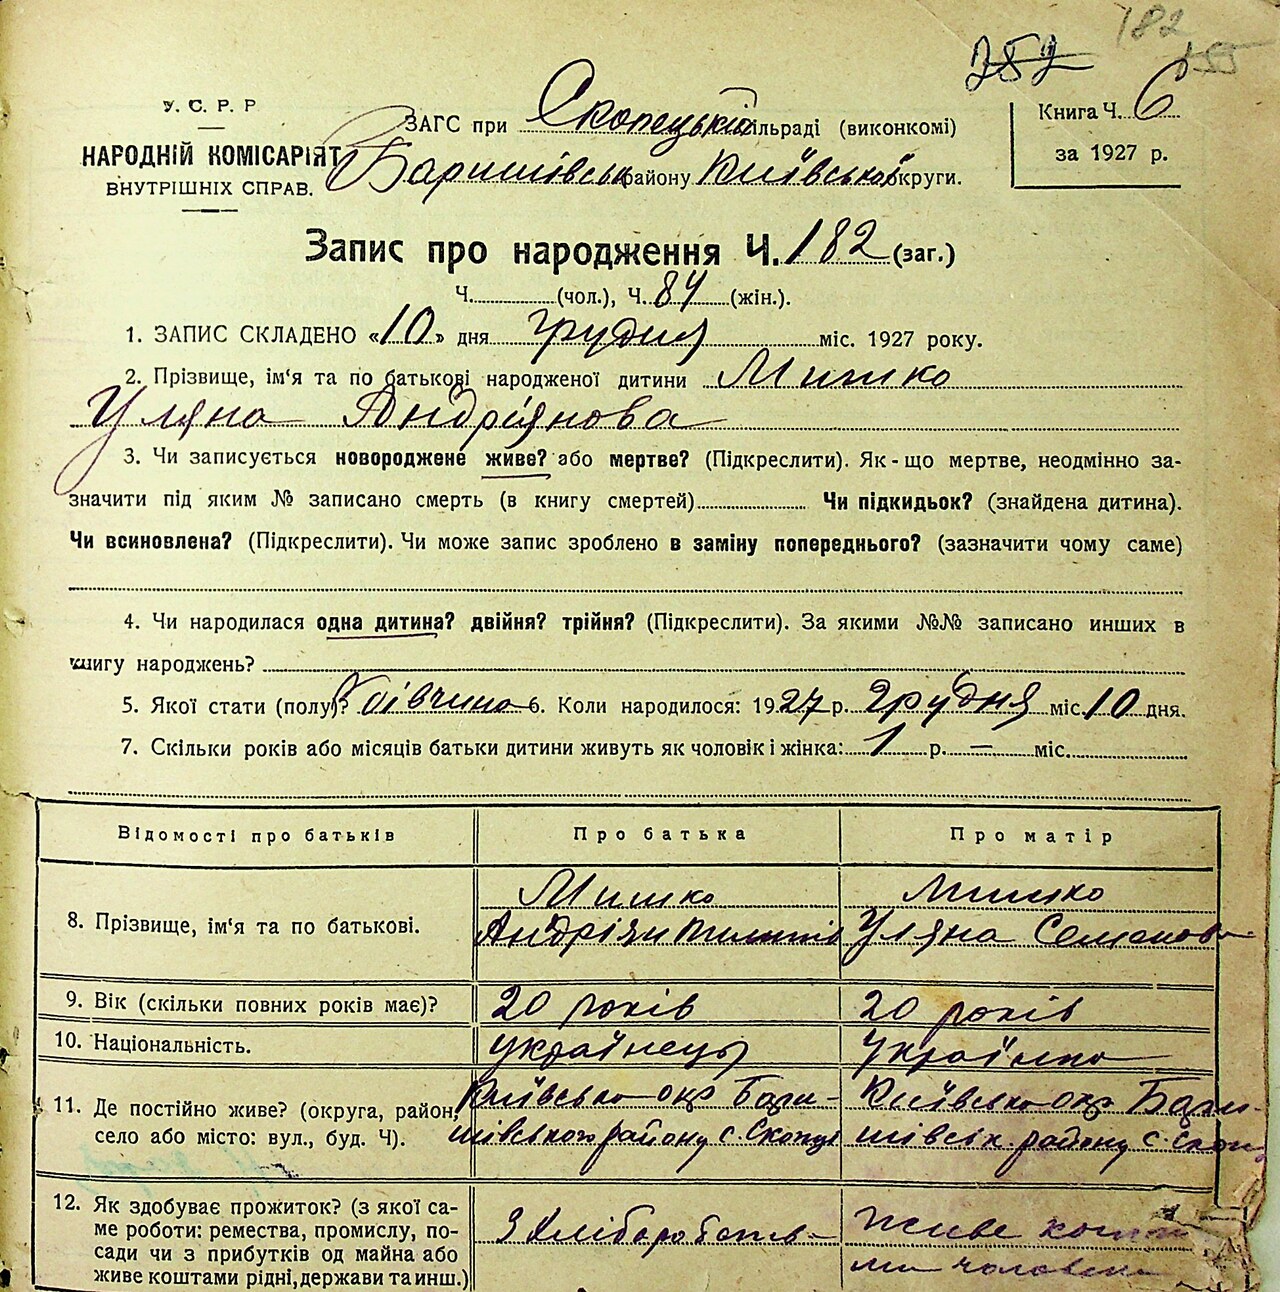 182
У. С. Р. Р
НАРОДНІЙ КОМІСАРІЯТ
ВНУТРІШНІХ СПРАВ.
ЗАГС при Скопецькій сільраді (виконкомі)
Баришівськ району Київської округи.
Книга Ч. 6
за 1927 р.
Запис про народження Ч. 182 (заг.)
Ч. (чол.), Ч. 84 (жін.).
1. ЗАПИС СКЛАДЕНО «10» дня грудня міс. 1927 року.
2. Прізвище, ім‘я та по батькові народженої дитини Мишко
Уляна Андріянова
3. Чи записується новороджене живе? або мертве? (Підкреслити). Як-що мертве, неодмінно за-
значити під яким № записано смерть (в книгу смертей) Чи підкидьок? (знайдена дитина).
Чи всиновлена? (Підкреслити). Чи може запис зроблено в заміну попереднього? (зазначити чому саме)
4. Чи народилася одна дитина? двійня? трійня? (Підкреслити). За якими №№ записано инших в
книгу народжень?
5. Якої стати (полу)? дівчина 6. Коли народилося: 1927 р. грудня міс. 10 дня.
7. Скільки років або місяців батьки дитини живуть як чоловік і жінка: 1 р. — міс.
Відомості про батьків Про батька Про матір
8. Прізвище, ім‘я та по батькові.
Мишко
Андріян
Мишко
Уляна Семенова
9. Вік (скільки повних років має)? 20 років 20 років
10. Національність. українець українка
11. Де постійно живе? (округа, район,
село або місто: вул., буд. Ч).
Київська окр Бари-
шівського району с. Скопці
Київська окр Бари-
шівськ. району с. Скоп
12. Як здобуває прожиток? (з якої са-
ме роботи: ремества, промислу, по-
сади чи з прибутків од майна або
живе коштами рідні, держави та инш.)
З хліборобств
живе кошта
ми чоловіка